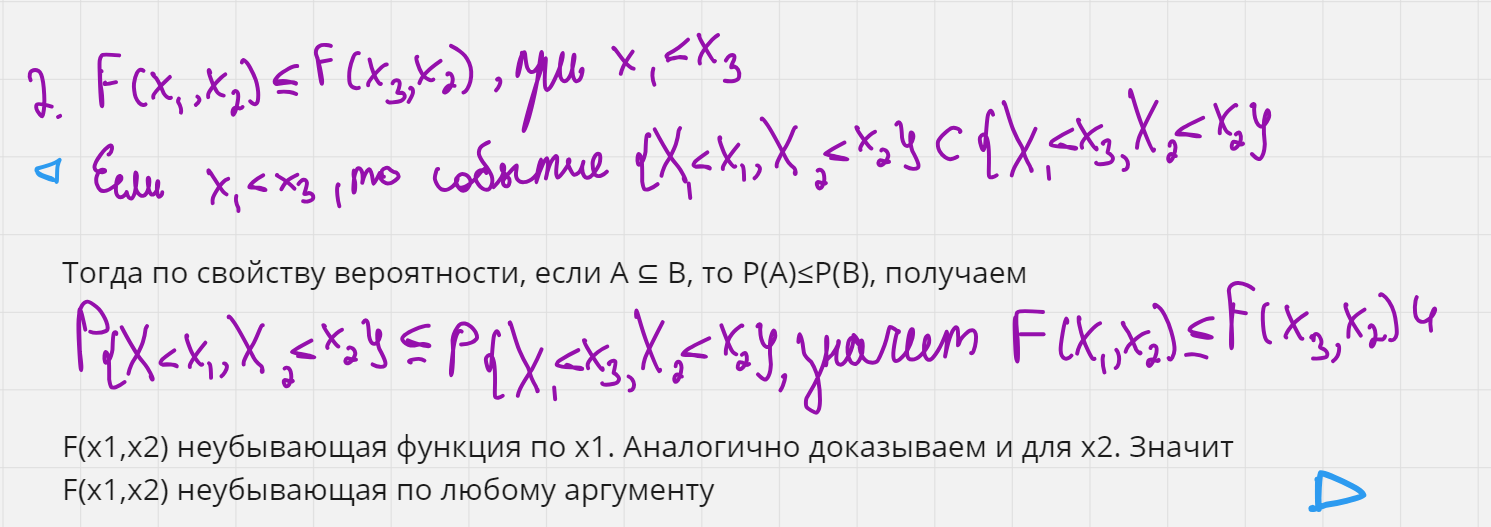 2. F(x₁,x₂) ≤ F(x₃,x₂), при x₁<x₃
Если x₁<x₃, то событие {X₁<x₁, X₂<x₂} ⊂ {X₁<x₃, X₂<x₂}
Тогда по свойству вероятности, если A ⊆ B, то P(A)≤P(B), получаем
P{X<x₁, X₂<x₂} ≤ P{X₁<x₃, X₂<x₂}, значит F(x₁,x₂) ≤ F(x₃,x₂) и
F(x1,x2) неубывающая функция по x1. Аналогично доказываем и для x2. Значит
F(x1,x2) неубывающая по любому аргументу